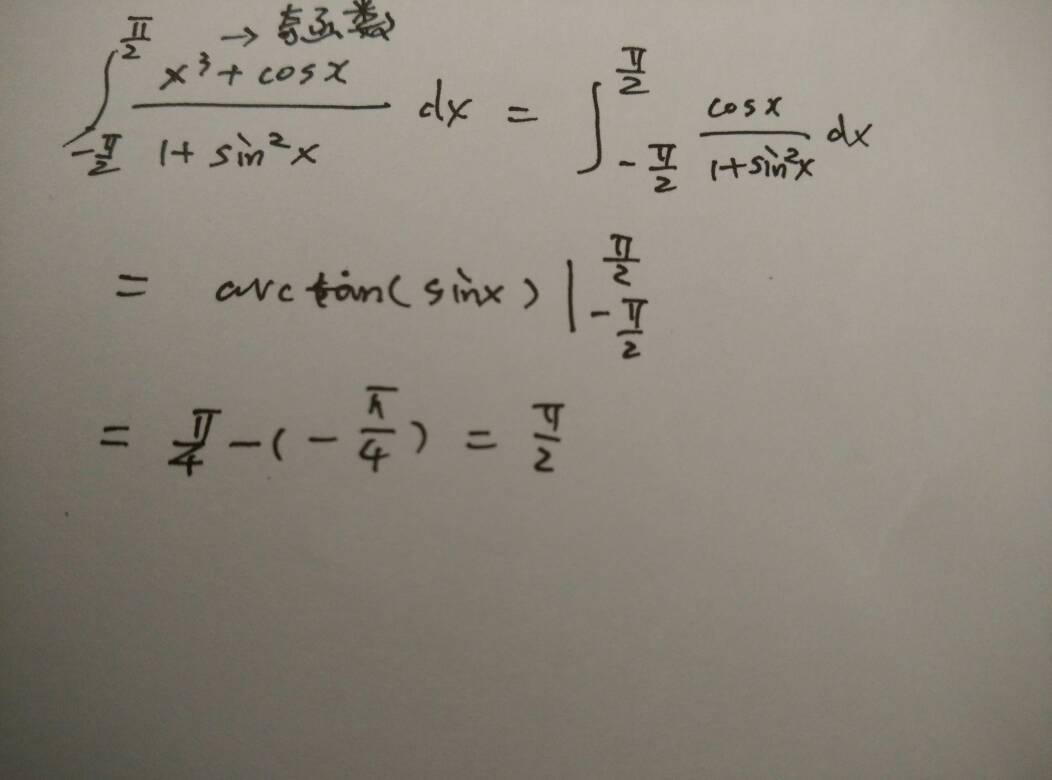 ∫_{-π/2}^{π/2} (x³ + cosx)/(1 + sin²x) dx = ∫_{-π/2}^{π/2} cosx/(1+sin²x) dx
→ 奇函数
= arctan(sinx) |_{-π/2}^{π/2}
= π/4 - (-π/4) = π/2